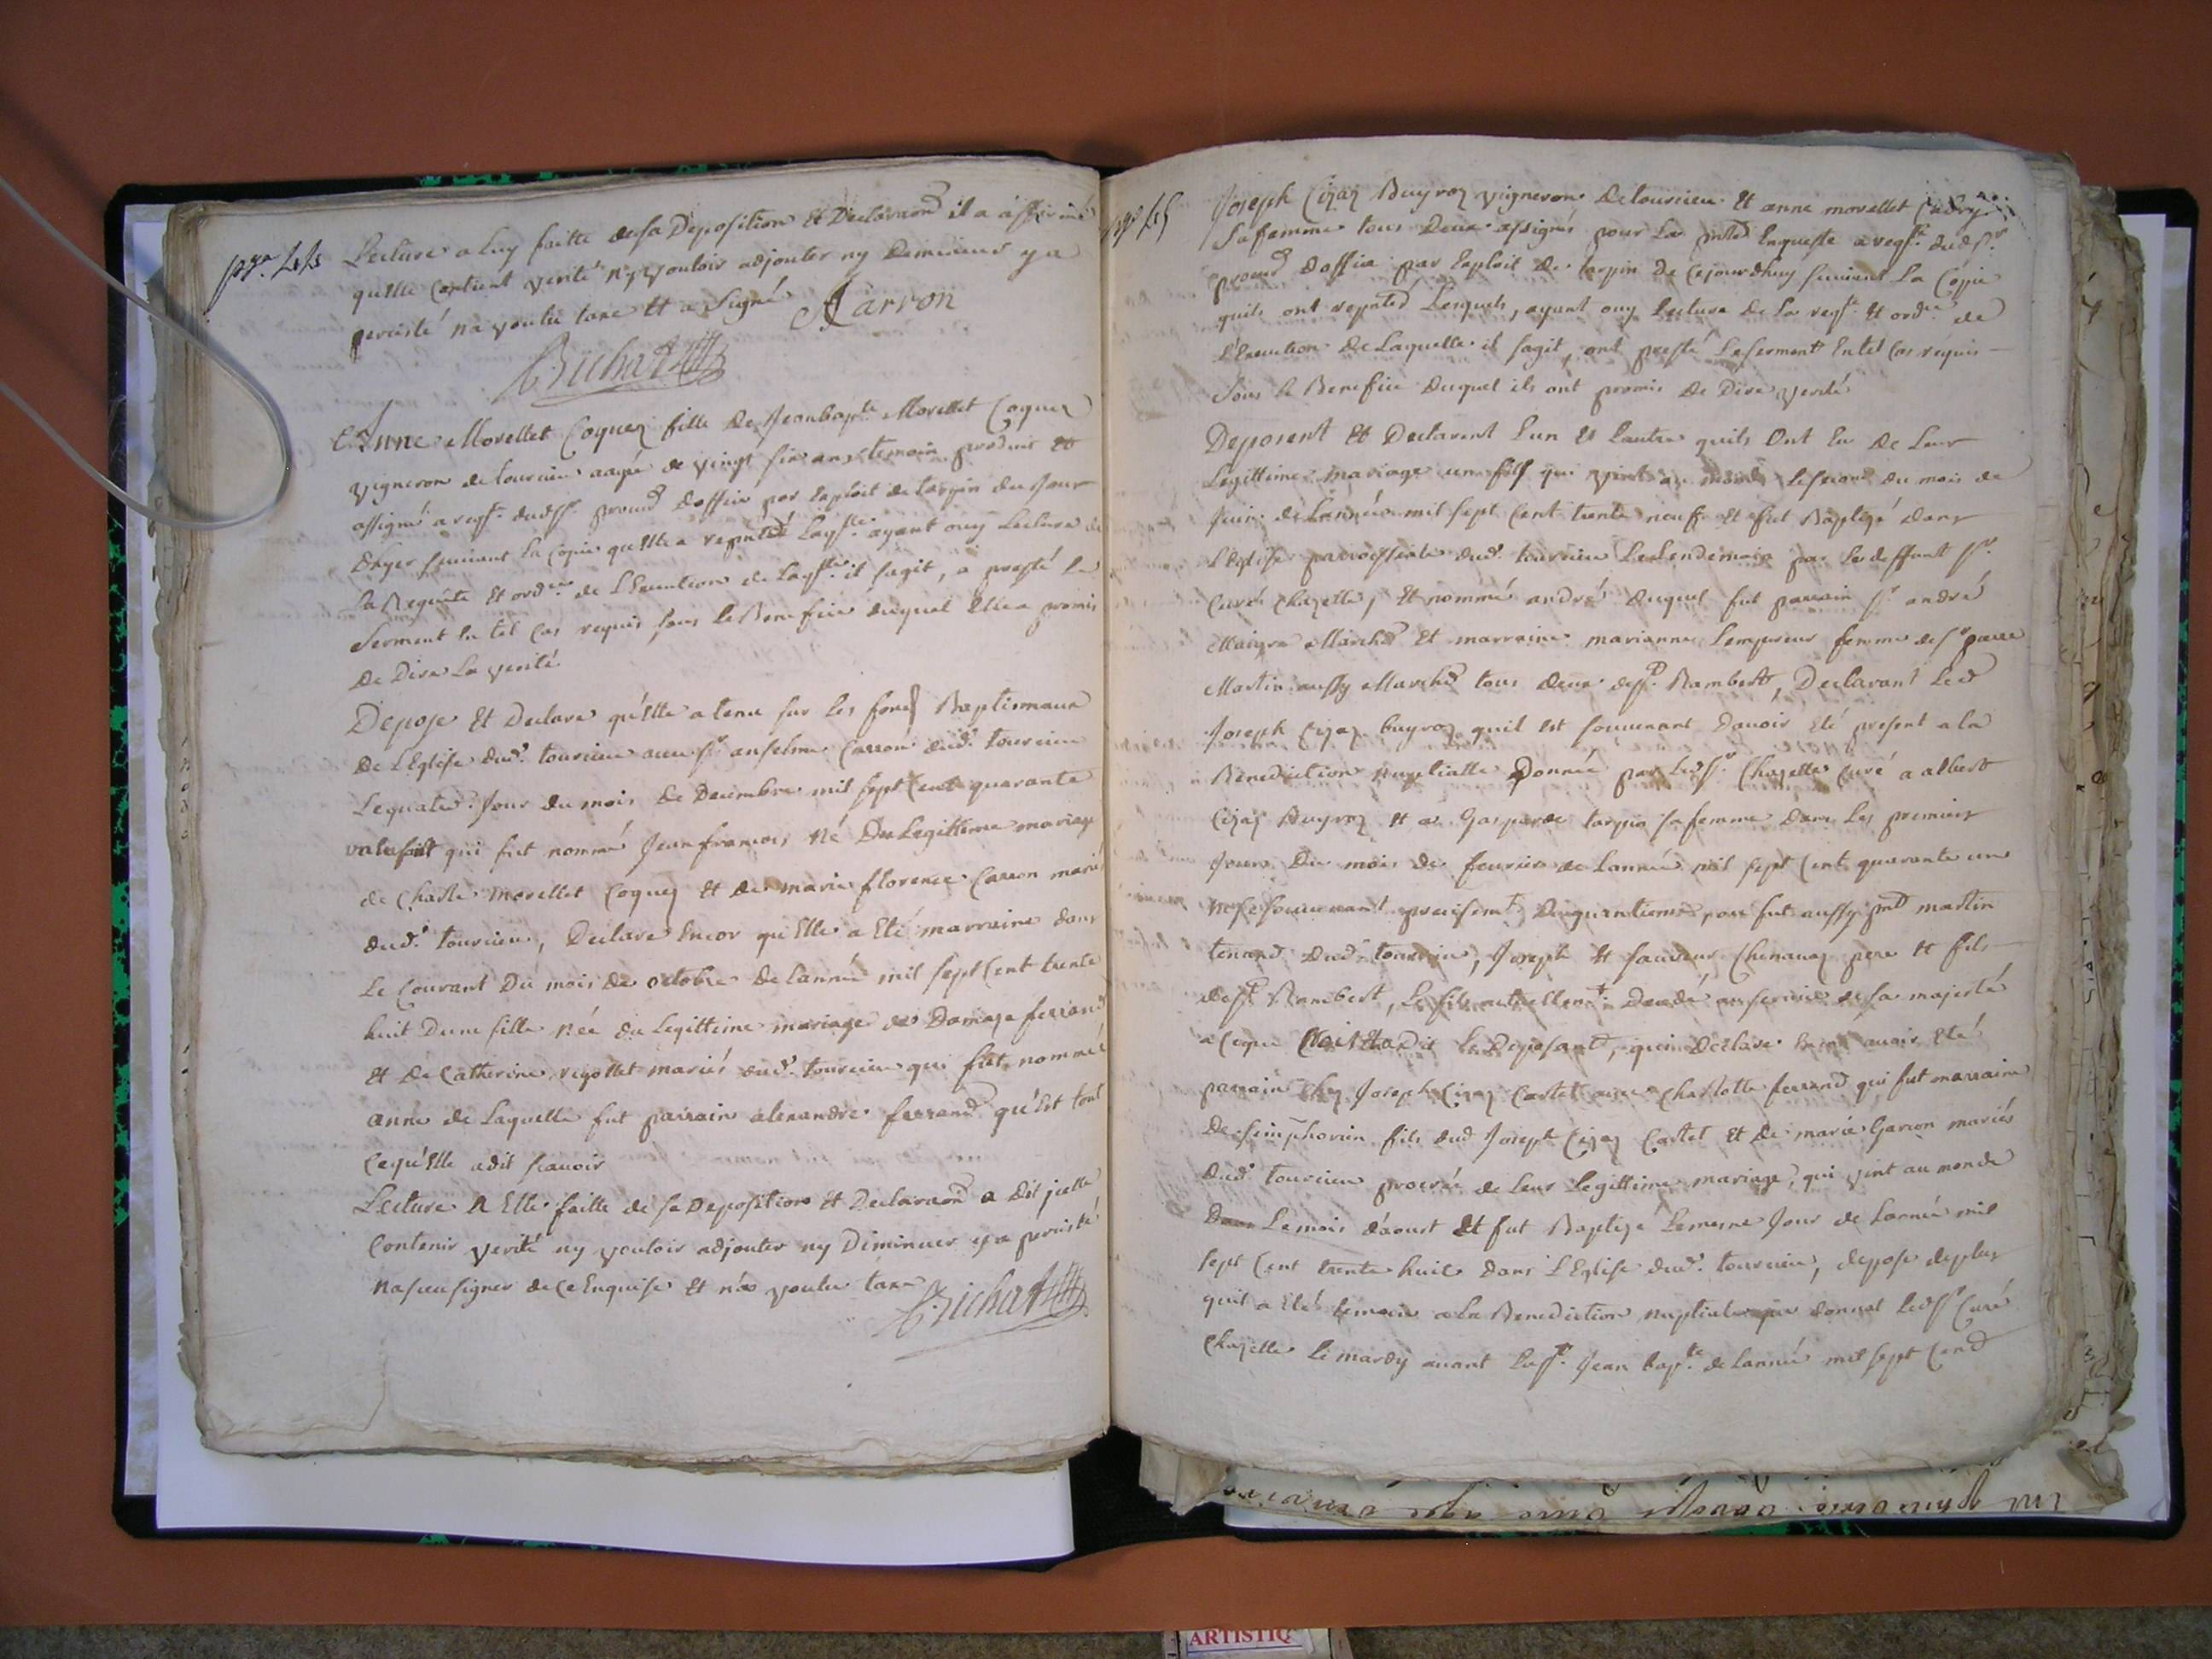 pge. 44
Lecture a Luy faitte de sa Deposition Et Declaraon il a affirmé
quelle Contient verité ny vouloir adjouter ny Diminuer y a
percisté na voulu taxe Et a Signé Carron
Brichat
Anne Morellet Coquez fille De Jeanbapte Morellet Coquez
vigneron de tourcieu aagée de vingt six ans temoin produit et
assigné a reqte. dudSr. procur d'office par Exploit de tarpin du Jour
Dhyer suivant la Copie quElle a repnté Laqlle. ayant ouy Lecture de
La Requete Et ordce. de LExecution de Laqlle. il sagit, a presté le
Serment En tel Cas requis sous le Benefice duquel Ellea promis
de Dire La verité
Depose Et Declare quElle a tenu sur Les fons Baptismaux
De LEglise dud. tourcieu avec Sr anselme Carron dud. tourcieu
Lequatre. Jour du mois de Decembre mil sept Cent quarante
un qui fut nommé Jeanfrancois Né Du Legittime mariage
de Charle Morellet Coquez Et de marie florence Carron mariés
dud. tourcieu, Declare Encor quElle a Eté marraine dans
Le Courant Du mois de octobre de Lannée mil sept Cent trente
huit Dune fille Née du Legittime mariage de Domage ferrand
Et De Catherine reyottet mariés dud. tourcieu qui fut nommée
anne de Laquelle fut parrain alexandre ferrand qu'Est tout
Cequ'Elle adit scavoir
Lecture A Elle faitte de sa Deposition Et Declaraon a Dit jcelle
Contenir verité ny vouloir adjouter ny Diminuer y a percisté
na sceu signer de Ce Enquise Et n'a voulu taxe
Brichat
pge 45
Joseph Cizaz Buyroz vigneron de tourcieu Et anne morellet
Sa femme tous Deux assignés pour La pnte Enqueste a reqte. dudSr.
procur d'office par Exploit de tarpin de Cejourdhuy suivant La Copie
quils ont repnté Lesquels, ayant ouy Lecture de La reqte. Et ordce de
LExecution de Laquelle il sagit, ont presté Leserment En tel Cas requis
Sous le Benefice duquel ils ont promis de Dire verité
Deposent Et Declarent Lun Et Lautre quils Ont Eu de Leur
Legittime mariage un fils qui vint au monde Lesecond du mois de
Juin de Lannée mil sept Cent trente neuf Et fut Baptizé dans
LEglise parroissiale dud. tourcieu LeLendemain par Le deffunt Sr.
Curé Chazelle, Et nommé andré duquel fut parrain Sr andré
Maigre Marchd Et marraine marianne Lempereur femme de Sr pierre
Martin aussy Marchd tous deux de St. Rambert, Declarant Led
Joseph Cizaz buyroz quil est souvenant davoir Eté present a la
Benediction nuptialle Donnée par LedSr. Chazelle Curé a albert
Cizaz Buyroz Et a Gasparde tarpin sa femme dans Les premiers
Jours Du mois de fevrier de Lannée mil sept Cent quarante un
ne se souvenant precisemt. du quantieme, ou fut aussy pnt martin
tenand dud. tourcieu, Joseph Et sauveur Chenavaz pere Et fils
de St. Rambert, Le fils actuellemt. au service de sa majesté
a Ceque Led Deposant, qui Declare Encor avoir Eté
parrain Chez Joseph Cizaz Castet avec Charlotte ferrand qui fut marraine
De simphorien fils dud Joseph Cizaz Castet Et de marie Garon mariés
dud. tourcieu procréé de Leur Legittime mariage, qui vint au monde
Dans Le mois d'aoust Et fut Baptizé Lemesme Jour de Lannée mil
sept Cent trente huit dans LEglise dud. tourcieu, depose deplus
quil a Eté temoin a La Benediction nuptiale que donnat LedSr Curé
Chazelle Le mardy avant La St. Jean bapte. de Lannée mil sept Cent
ARTISTIQ